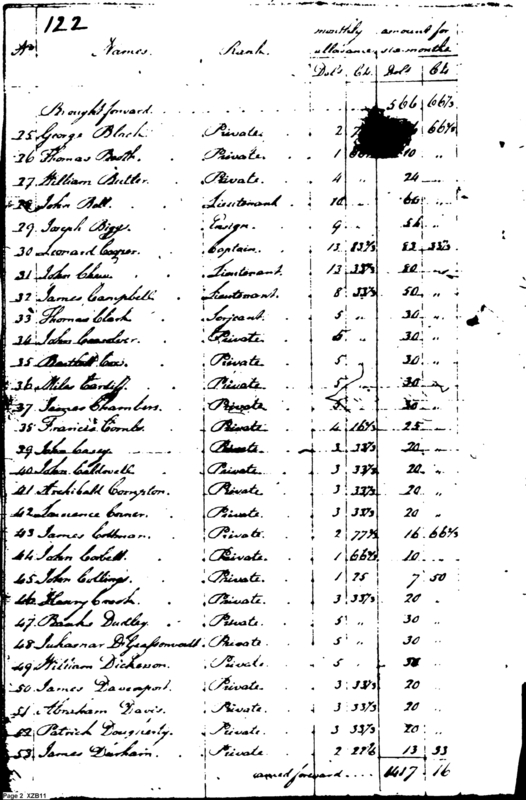 122
monthly amount for
No Names. Rank. allowance six months
Dol's Cts. Dol's Cts
Brought forward 566 66⅔
25 George Black Private 2 66⅔
26 Thomas Booth Private 1 10 "
27 William Butler Private 4 " 24
28 John Bell Lieutenant 66
29 Joseph Bigg Ensign 9 54
30 Leonard Cooper Captain 13 83⅓ 83 33⅓
31 John Chew Lieutenant 13 33⅓ 80
32 James Campbell Lieutenant 8 33⅓ 50
33 Thomas Clark Serjeant 5 " 30
34 John Private 5 30
35 Private 5 " 30
36 Miles Cardiff Private 5 30
37 James Chambers Private 5 30
38 Francis Combs Private 4 16⅔ 25
39 John Casey Private 3 33⅓ 20
40 John Caldwell Private 3 33⅓ 20 "
41 Archibald Compton Private 3 33⅓ 20 "
42 Lawrence Conner Private 3 33⅓ 20 "
43 James Cottman Private 2 77⅔ 16 66⅔
44 John Corbett Private 1 66⅔ 10
45 John Collins Private 1 25 7 50
46 Henry Crook Private 3 33⅓ 20
47 Banks Dudley Private 5 " 30
48 Private 5 " 30
49 William Dickesson Private 5 "
50 James Davenport Private 3 33⅓ 20
51 Abraham Davis Private 3 33⅓ 20
52 Patrick Dougherty Private 3 33⅓ 20
53 James Durham Private 2 13 33
carried forward 1417 16
Page 2 XZB11